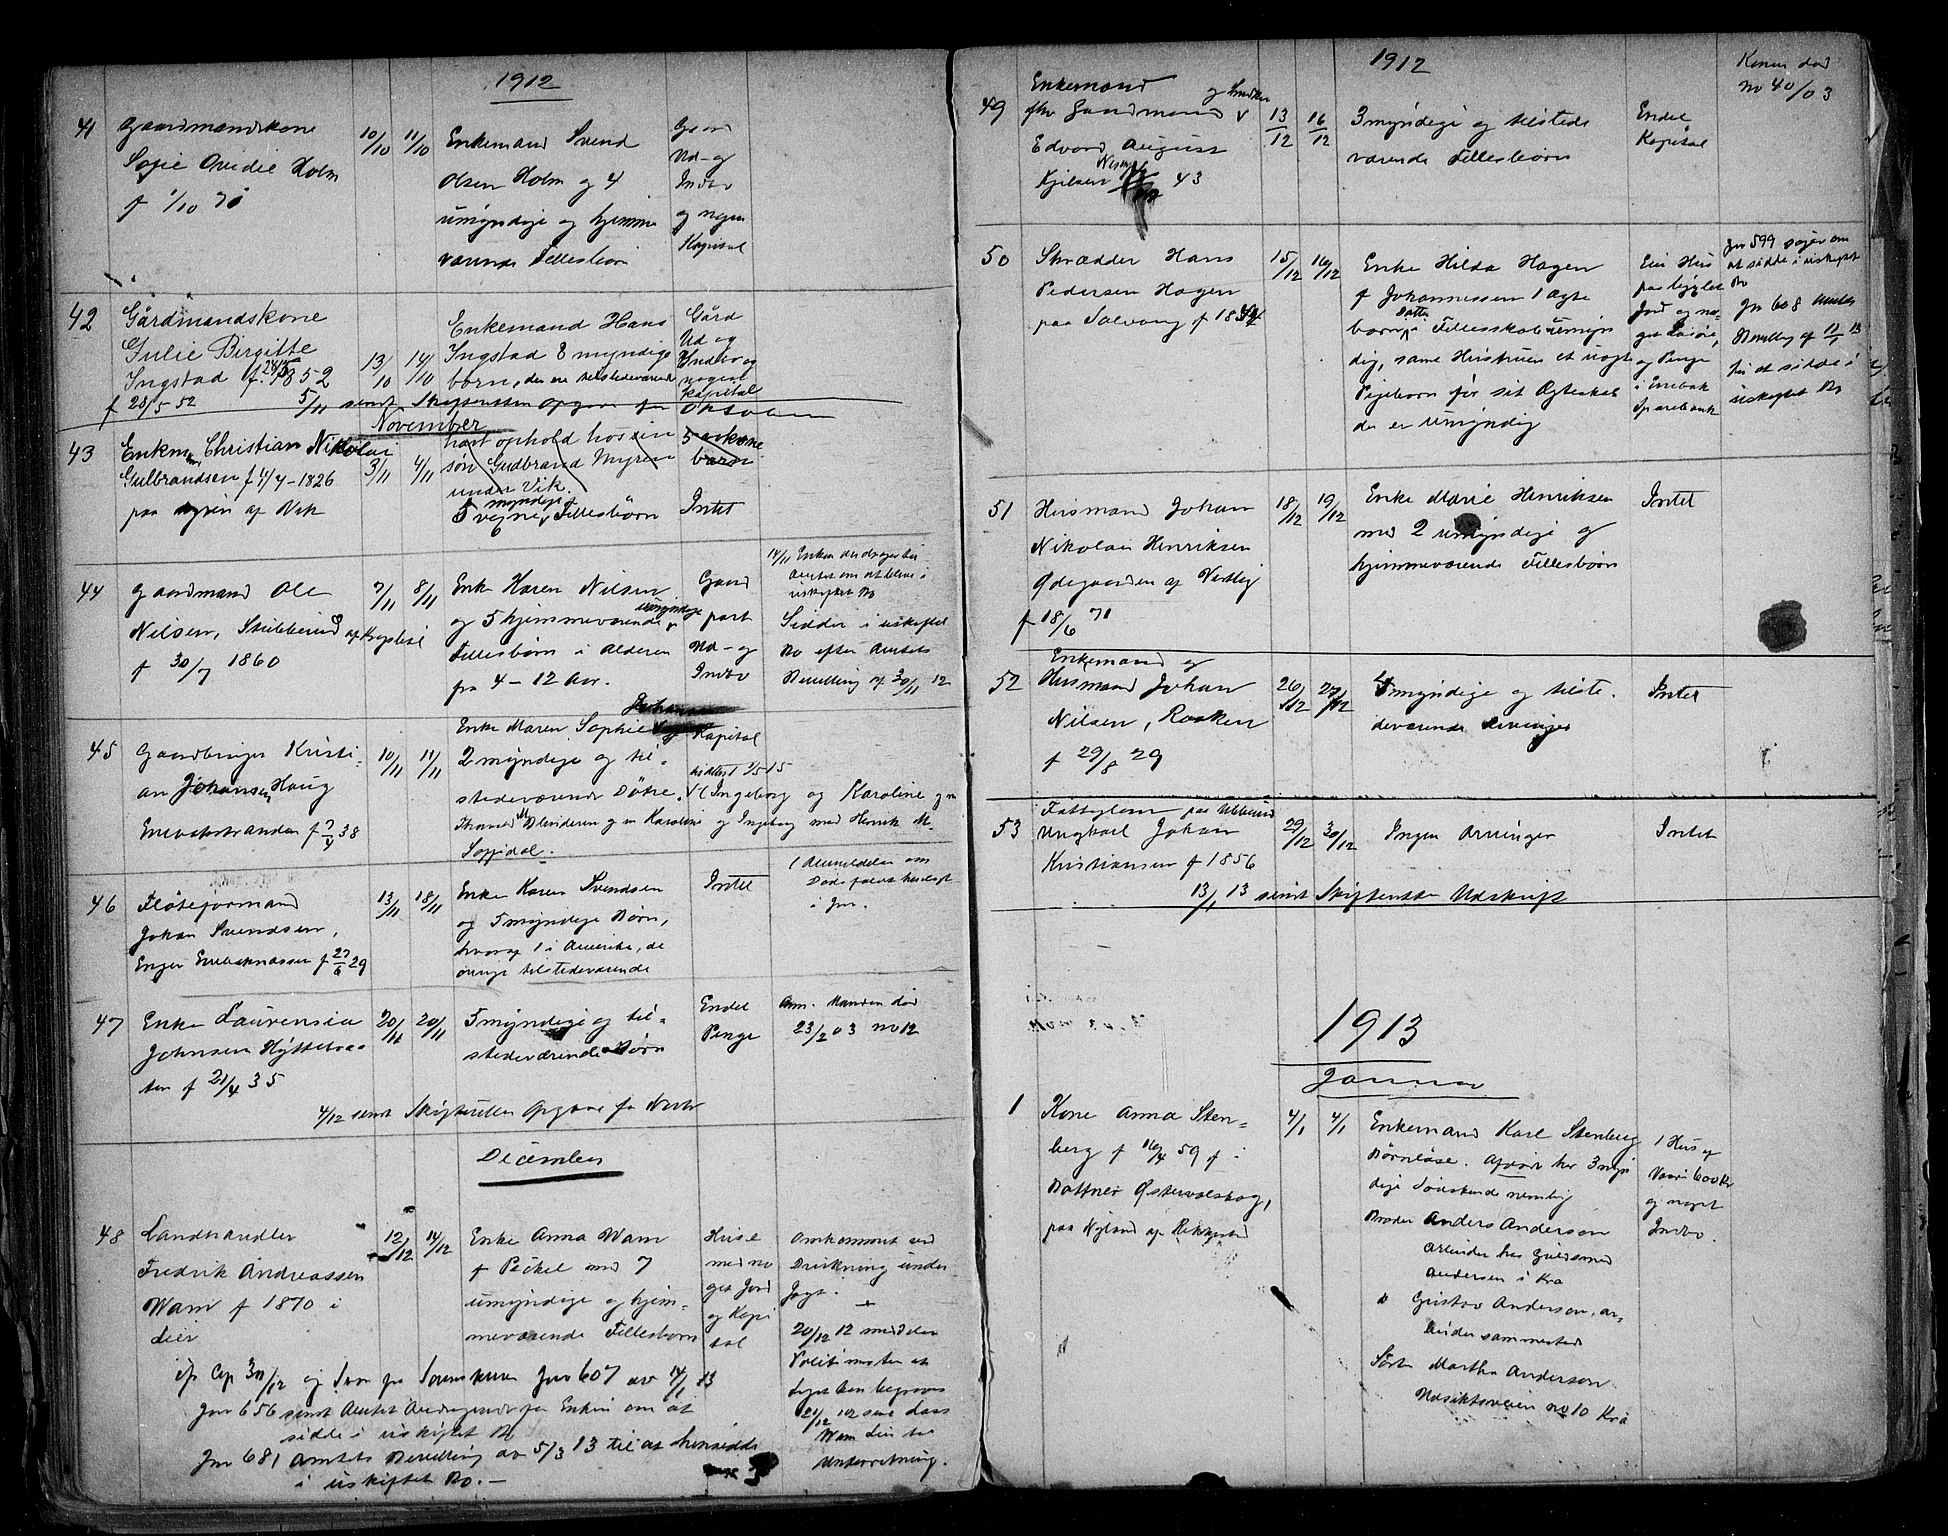 1912
41 Gaardmandskone
Sofie Ovidie Holm
f 1/10 70
10/10 11/10
Enkemand Svend
Olsen Holm og 4
umyndige og hjemme
værende Fellesbørn
Gaard
Ud- og
Indbo
og nogen
Kapital
42 Gårdmandskone
Julie Birgitte
Ingstad f. 1852
f 28/5-52
13/10 14/10
Enkemand Hans
Ingstad 8 myndige
børn, den ene tilstedeværende
Gård
Ud og
Indbo og
noget
Kapital
5/11 sendt Skifteretten Opgave for Oktober
November
43 Enkem. Christian Nikolai
Gulbrandsen f 11/4-1826
paa Myren af Vik
3/11 4/11
havt ophold hos sin
søn Gudbrand Myren
under Vik.
5 myndige Fellesbørn
børn
Intet
44 Gaardmand Ole
Nilsen, Stubberud af Krogsbøl
f 30/7 1860
7/11 8/11
Enke Karen Nilsen
og 5 hjemmeværende umyndige
Fellesbørn i Alderen
fra 4-12 Aar.
Gaard
part
Ud- og
Indbo
14/11 Enken andrager hos
Amtet om at blive i
uskiftet Bo
Sidder i uskiftet
Bo efter Amtets
Bevilling af 30/11 12
45 Gaardbruger Kristi-
an Johansen Haug
Enebakstranden f 7/4 38
10/11 11/11
Enke Maren Sophie
2 myndige og til-
stedeværende Døtre. Ingeborg og Karoline gm
Thorvald Blenderen gm Karoline og Ingeborg med Henrik M.
Sagdal.
Kapital
46 Fløteformand
Johan Svendsen,
Enger Enebaknessen f 27/6 29
13/11 18/11
Enke Karen Svendsen
og 5 myndige Børn,
hvoraf 1 i Amerika, de
øvrige tilstedeværende
Intet
1 Anmeldelse om
Dødsfaldet henlagt
i Jnr.
47 Enke Laurensia
Johnsen Hyttebraa-
ten f 21/4 35
20/11 20/11
5 myndige og til-
stedeværende Børn
Endel
Penge
Anm. Manden død
23/2 03 no 12
4/12 sendt Skifteretten Opgave for Novbr
December
48 Landhandler
Fredrik Andreassen
Wam f 1870 i
Lier
12/12 14/12
Enke Anna Wam
f Pickel med 7
umyndige og hjem-
meværende Fellesbørn
Huse
med no
get Jord
og Kapi
tal
Omkommet ved
Drukning under
Jagt.
20/12 12 meddelt
Politimesteren at
Liget kan begraves
21/12 12 sendt Lars
Wam Lier til
Underretning.
jfr Cop 30/12 og Svar fra Sorenskriver Jnr 607 av 14/1 13
Jnr 656 sendt Amtet Andragende fra Enken om at
sidde i uskiftet Bo
Jnr 681 Amtets Bevilling av 5/3 13 til at hensidde
i uskiftet Bo. -
1912
Konen død
no 40/03
49 Enkemand
fhv Gaardmand og Snedker
Edvard August
Kjilsen 43
13/12 16/12
3 myndige og tilstede
værende Fellesbørn
Endel
Kapital
50 Skrædder Hans
Pedersen Hagen
paa Solvang f 18
15/12 16/12
Enke Hilda Hagen
f Johannessen 1 ægte
barn, Datter Fellesskab umyn
dig, samt Hustruen et uægte
Pigebarn før sit Ægteskab
der er umyndig
Eier Hus
paa bygslet
Jord og no-
get Løsøre,
og Penge
i Enebak
Sparebank
Jnr 599 søger om
at sidde i uskiftet
Bo
Jn 608 Amtets
Bevilling af 11/1 13
til at sidde i
uskiftet Bo
51 Husmand Johan
Nikolai Henriksen
Ødegaarden af Vestby
f 18/6 71
18/12 19/12
Enke Marie Henriksen
med 2 umyndige og
hjemmeværende Fellesbørn
Intet
52 Enkemand og
Husmand Johan
Nilsen, Rosken
f 29/8 29
26/12 27/12
4 myndige og tilste-
deværende Arvinger
Intet
53 Fattiglem paa Ubberud
Ungkarl Johan
Kristiansen f 1856
29/12 30/12
Ingen Arvinger
Intet
13/1 13 sendt Skifteretten Udskrift
1913
Januar
1 Kone Anna Sten-
berg f 16/4 59 f i
Bottner Østervalskog,
paa Nyland af Rikkestad
4/1 4/1
Enkemand Karl Stenberg
Børnløse. Afdøde har 3 myn
dige Sødskende nemlig
Broder Anders Anderson
Arbeider hos Guldsmed
Andersen i Kra
" Gustav Anderson, ar-
beider sammested
Søster Martha Anderson
Udsiktsveien no 10 Kra
1 Hus af
Værdi 600 Kr
og noget
Indbo.